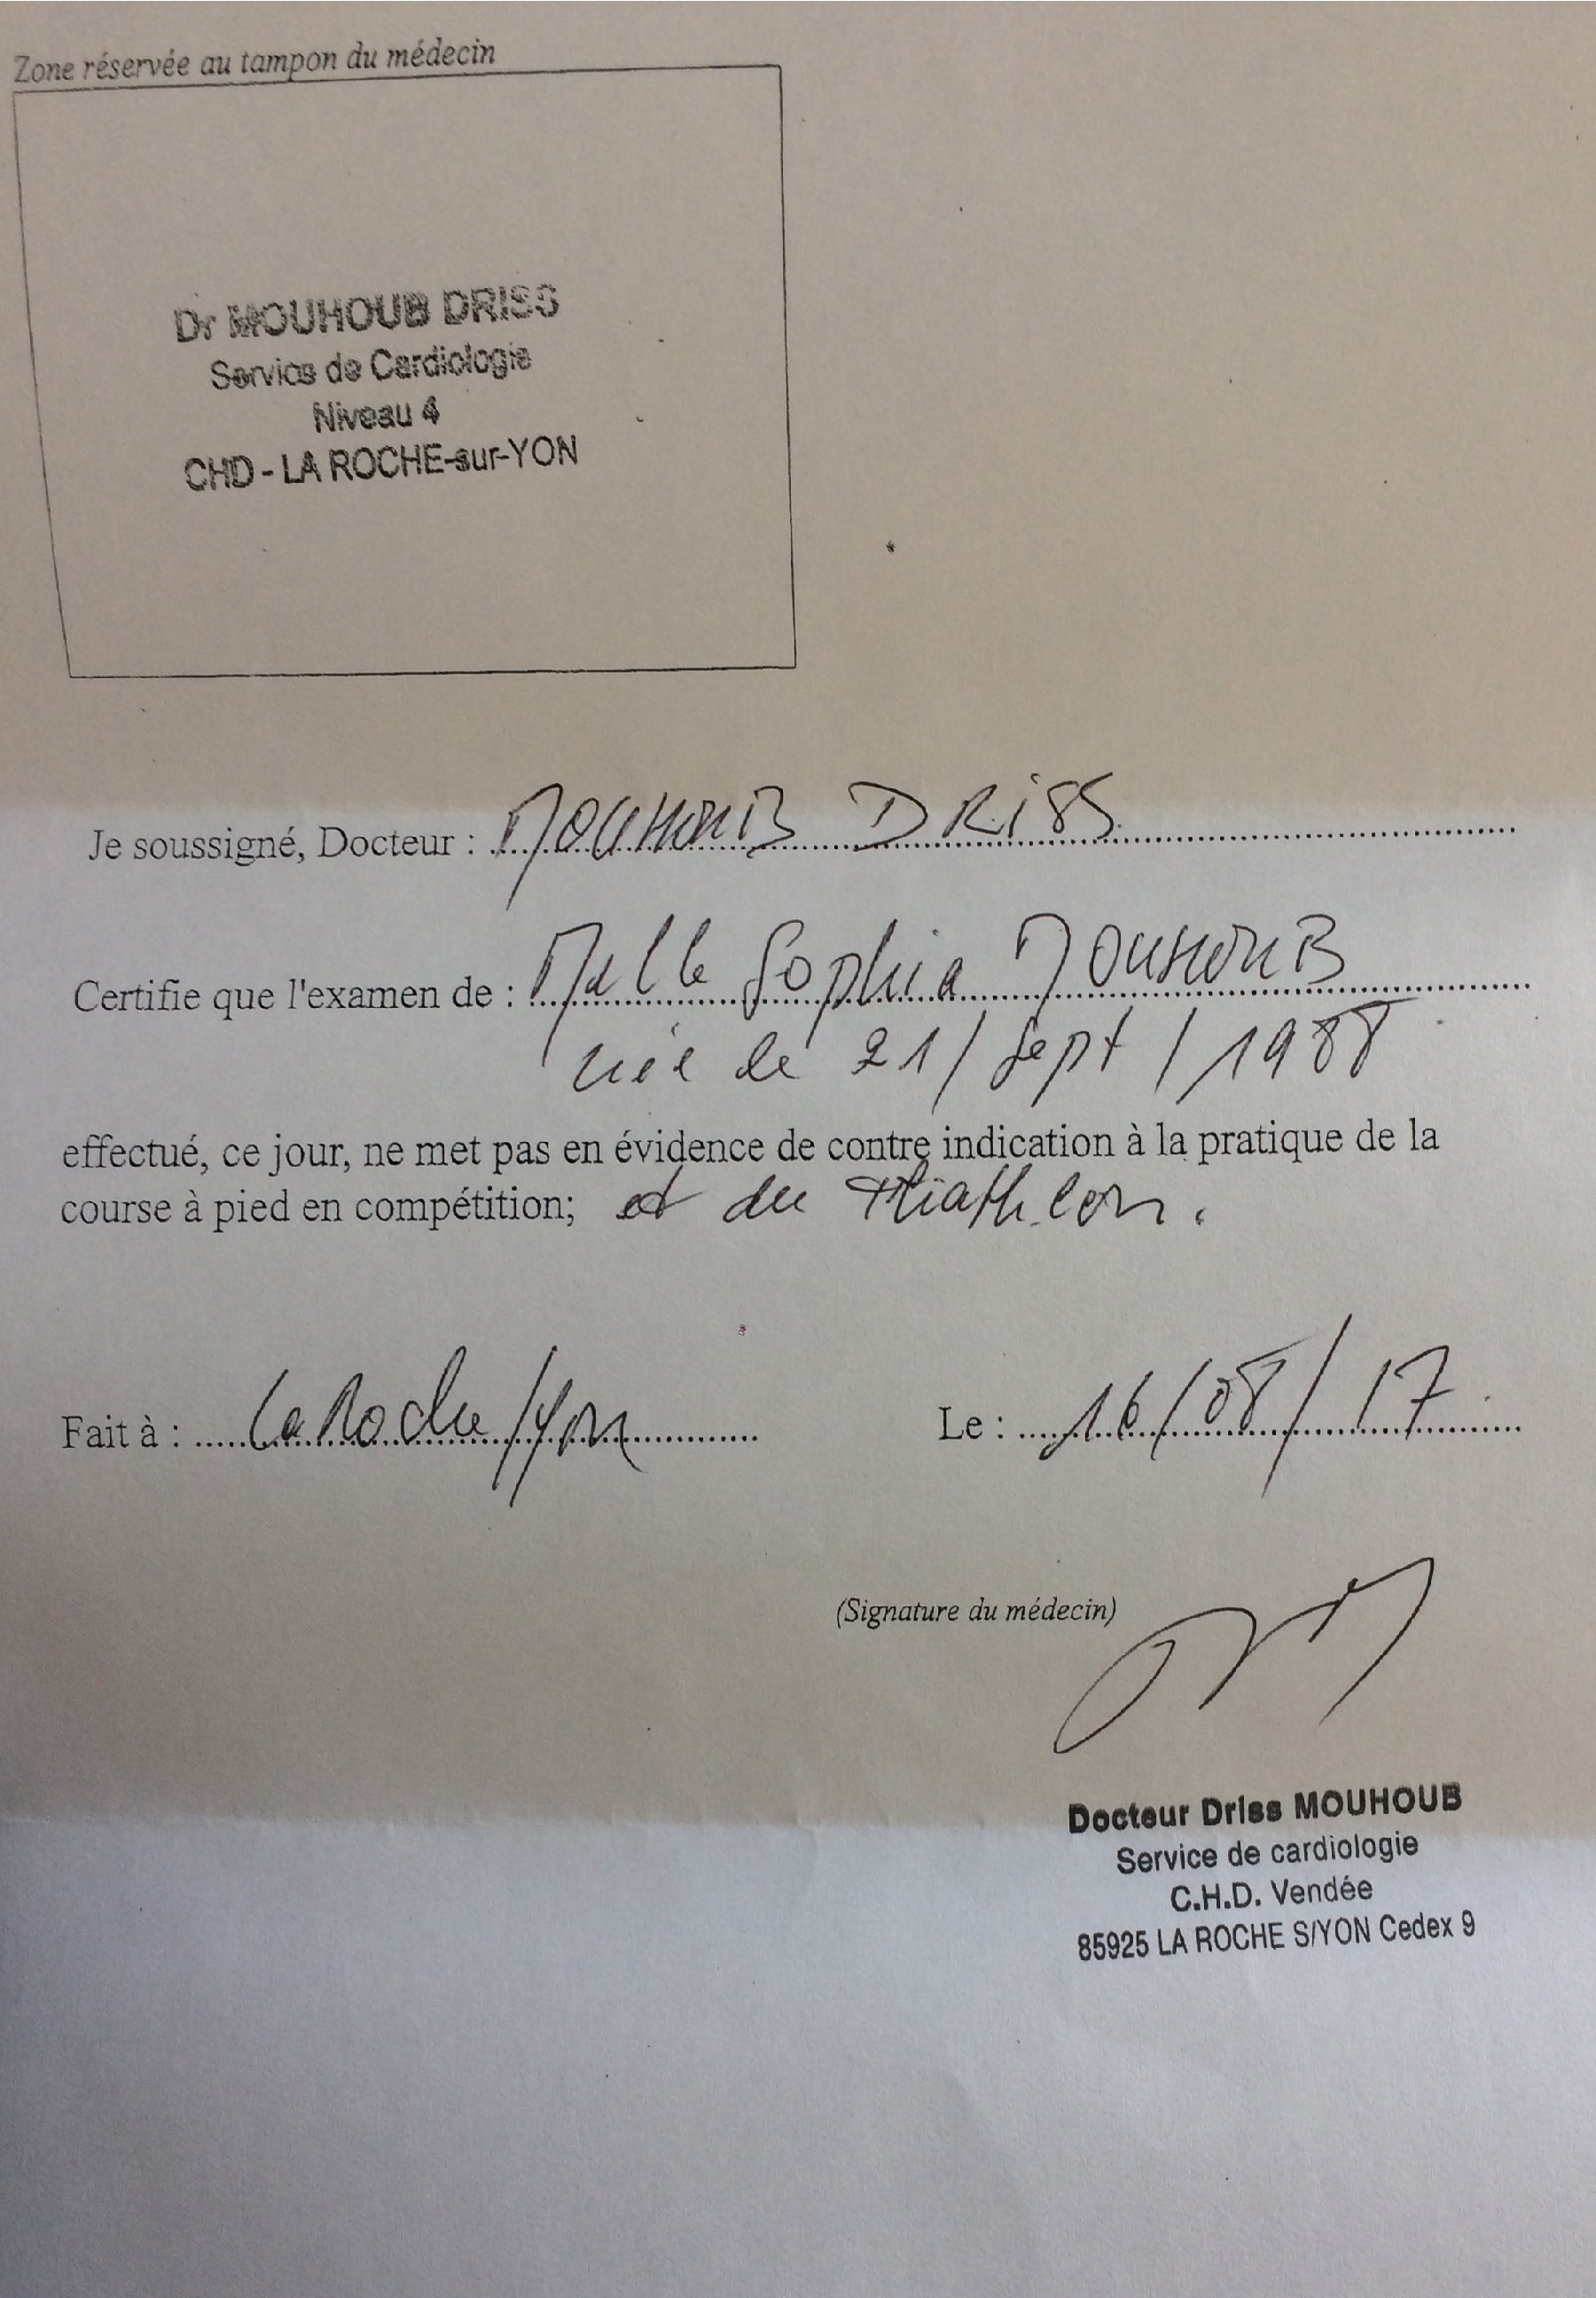 Zone réservée au tampon du médecin
Dr MOUHOUB DRISS
Service de Cardiologie
Niveau 4
CHD - LA ROCHE-sur-YON
Je soussigné, Docteur : MOUHOUB DRiSS
Certifie que l'examen de : Melle Sophia MOUHOUB
née le 21/Sept/1988
effectué, ce jour, ne met pas en évidence de contre indication à la pratique de la
course à pied en compétition; et du triathlon.
Fait à : La Roche/Yon Le : 16/08/17
(Signature du médecin)
Docteur Driss MOUHOUB
Service de cardiologie
C.H.D. Vendée
85925 LA ROCHE S/YON Cedex 9